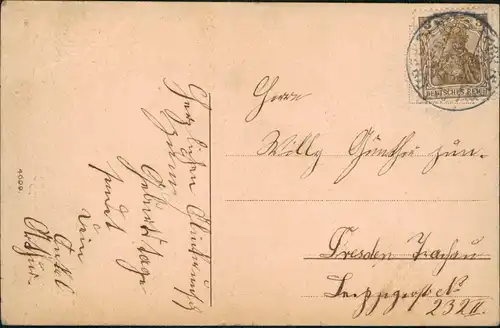 Herzlichen Glückwunsch
zum
Geburtstage
sendet
Dein
Onkel
Arthur.
4009.
DEUTSCHES REICH
Herrn
Willy Günther jun.
Dresden Trachau
Leipzigerstr. No
232 II.